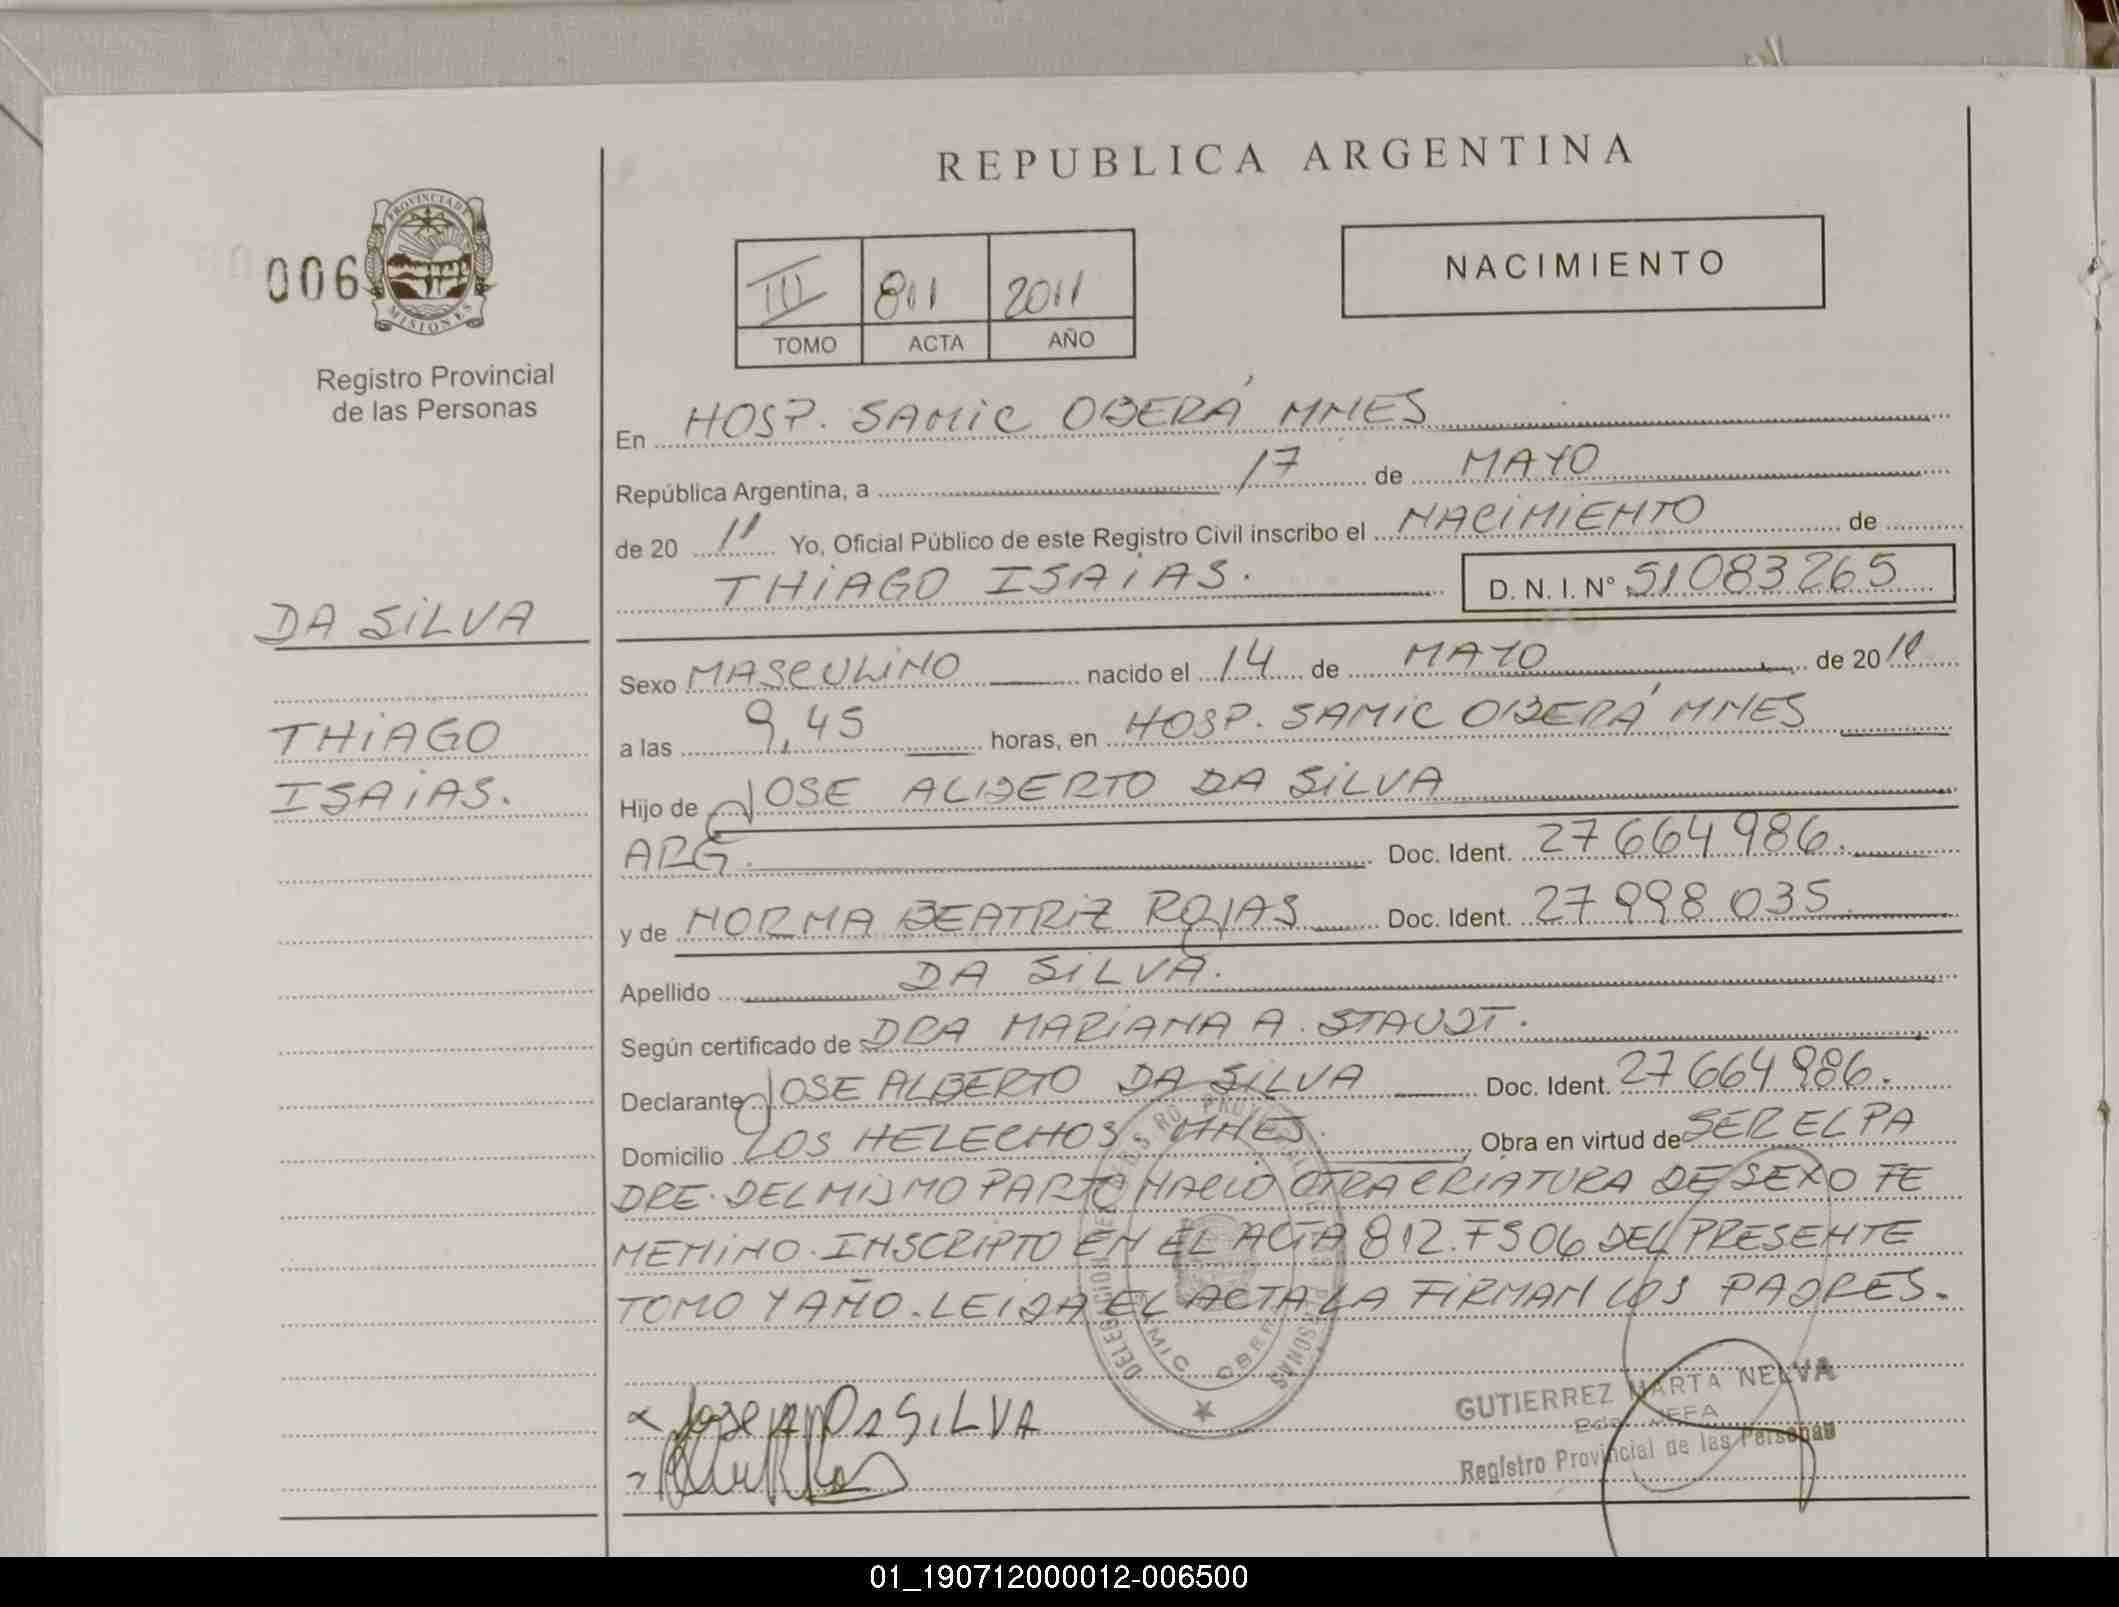 REPUBLICA ARGENTINA
006
PROVINCIA DE
MISIONES
Registro Provincial
de las Personas
III 811 2011
TOMO ACTA AÑO
NACIMIENTO
En HOSP. SAMIC OBERÁ MNES
República Argentina, a 17 de MAYO
de 20 11 Yo, Oficial Público de este Registro Civil inscribo el NACIMIENTO de
THIAGO ISAIAS. D. N. I. Nº 51083265
DA SILVA
THIAGO
ISAIAS.
Sexo MASCULINO nacido el 14 de MAYO de 2011
a las 9,45 horas, en HOSP. SAMIC OBERÁ MNES
Hijo de JOSE ALBERTO DA SILVA
ARG. Doc. Ident. 27664986.
y de NORMA BEATRIZ ROJAS Doc. Ident. 27998035.
Apellido DA SILVA.
Según certificado de DRA MARIANA A. STAUDT.
Declarante JOSE ALBERTO DA SILVA Doc. Ident. 27664986.
Domicilio LOS HELECHOS MNES. Obra en virtud de SER EL PA
DRE. DEL MISMO PARTO NACIO OTRA CRIATURA DE SEXO FE
MENINO. INSCRIPTO EN EL ACTA 812. Fº 506 DEL PRESENTE
TOMO Y AÑO. LEIDA EL ACTA LA FIRMAN LOS PADRES.
Jose A DA SILVA
GUTIERREZ MARTA NELVA
JEFA
Registro Provincial de las Personas
01_190712000012-006500